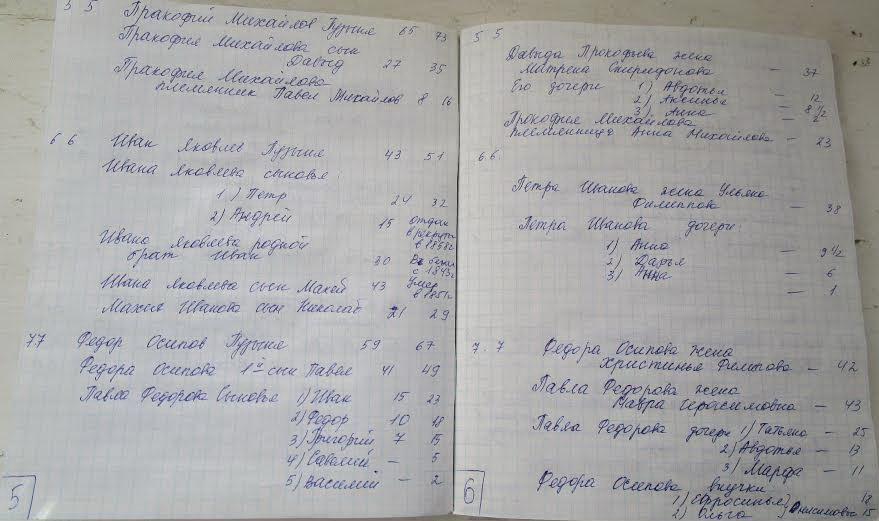 5 5 Прокофий Михайлов Пузыня 65 73
Прокофия Михайлова сын
Давыд 27 35
Прокофия Михайлова
племянник Павел Михайлов 8 16
6 6 Иван Яковлев Пузыня 43 51
Ивана Яковлева сыновья:
1) Петр 24 32
2) Андрей 15 отдан
в рекруты
в 1858г
Ивана Яковлева родной
брат Иван 30 В бегах
с 1843г
Ивана Яковлева сын Макей 43 Умер
в 1851г
Иванова сын Николай 21 29
7 7 Федор Осипов Пузыня 59 67
Федора Осипова 1й сын Павел 41 49
Павла Федорова Сыновья 1) Иван 15 23
2) Федор 10 18
3) Григорий 7 15
4) Савелий - 5
5) Василий - 2
5
5 5
Давыда Прокофьева жена
Матрена Спиридонова - 37
Его дочери 1) Авдотья - 12
2) Аксинья - 8 1/2
3) Анна -
Прокофия Михайлова
племянница Анна Михайлова - 23
6 6.
Петра Иванова жена Ульяна
Филиппова - 38
Петра Иванова дочери:
1) Анна - 9 1/2
2) Дарья - 6
3) Анна - 1
7. 7 Федора Осипова жена
Христинья Филипова - 42
Павла Федорова жена
Мавра Герасимовна - 43
Павла Федорова дочери 1) Татьяна - 25
2) Авдотья - 13
3) Марфа - 11
Федора Осипова внучки
1) Ефросинья } 18
2) Ольга } Анисимовы 15
6